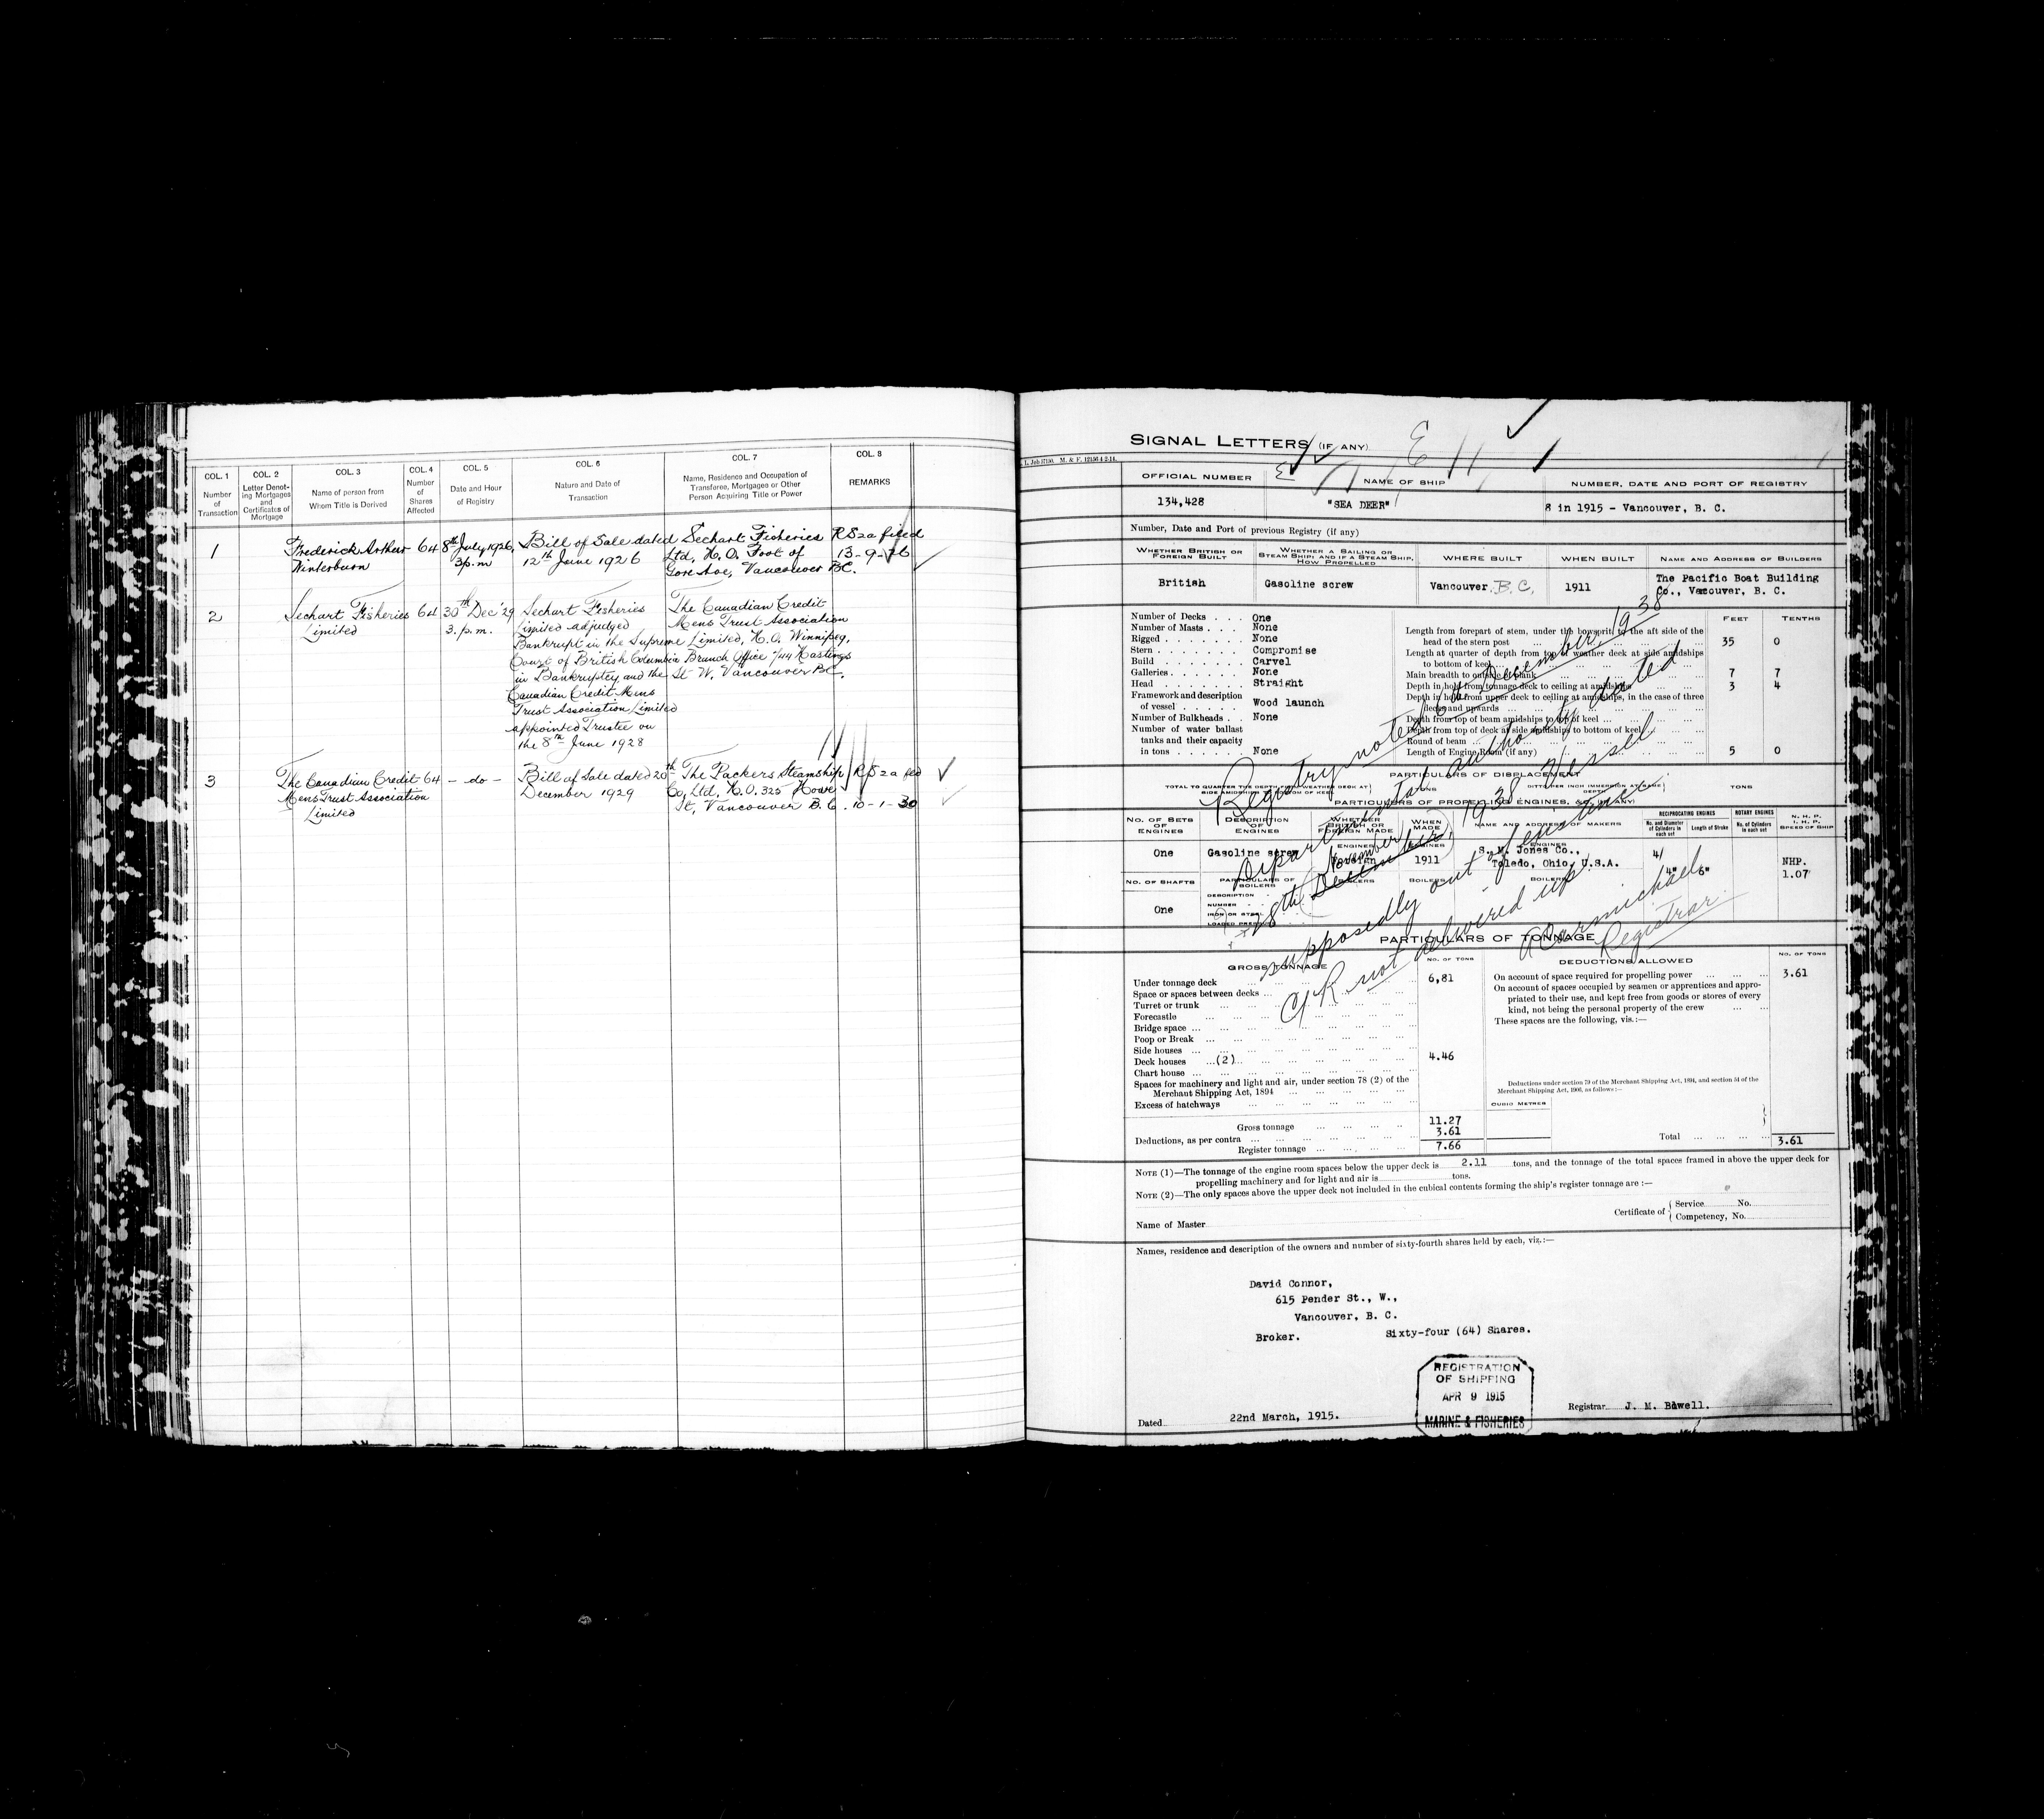 COL. 1
Number
of
Transaction
COL. 2
Letter Denot-
ing Mortgages
and
Certificates of
Mortgage
COL. 3
Name of person from
Whom Title is Derived
COL. 4
Number
of
Shares
Affected
COL. 5
Date and Hour
of Registry
COL. 6
Nature and Date of
Transaction
COL. 7
Name, Residence and Occupation of
Transferee, Mortgagee or Other
Person Acquiring Title or Power
COL. 8
REMARKS
1
Frederick Arthur
Winterburn
64
8th July 1926,
3 p.m
Bill of Sale dated
12th June 1926
Sechart Fisheries
Ltd, H.O. Foot of
Gore Ave, Vancouver BC.
RS2a filed
13-9-26
2
Sechart Fisheries
Limited
64
30th Dec '29
3. p.m.
Sechart Fisheries
Limited adjudged
Bankrupt in the Supreme
Court of British Columbia
in Bankruptcy, and the
Canadian Credit Mens
Trust Association Limited
appointed Trustee on
the 8th June 1928
The Canadian Credit
Mens Trust Association
Limited, H.O. Winnipeg,
Branch Office 744 Hastings
St W, Vancouver BC.
3
The Canadian Credit
Mens Trust Association
Limited
64
- do -
Bill of Sale dated 20th
December 1929
The Packers Steamship
Co, Ltd, H.O. 325 Howe
St, Vancouver B.C.
RS2a fed
10-1-30
SIGNAL LETTERS (IF ANY)
OFFICIAL NUMBER
NAME OF SHIP
NUMBER, DATE AND PORT OF REGISTRY
134,428
"SEA DEER"
8 in 1915 - Vancouver, B. C.
Number, Date and Port of previous Registry (if any)
WHETHER BRITISH OR
FOREIGN BUILT
WHETHER A SAILING OR
STEAM SHIP; AND IF A STEAM SHIP,
HOW PROPELLED
WHERE BUILT
WHEN BUILT
NAME AND ADDRESS OF BUILDERS
British
Gasoline screw
Vancouver B.C.
1911
The Pacific Boat Building
Co., Vancouver, B. C.
FEET
TENTHS
Number of Decks . . . One
Number of Masts . . . None
Rigged . . . None
Stern . . . Compromise
Build . . . Carvel
Galleries . . . None
Head . . . Straight
Framework and description
of vessel . . . Wood launch
Number of Bulkheads . . None
Number of water ballast
tanks and their capacity
in tons . . . None
Length from forepart of stem, under the bowsprit, to the aft side of the
head of the stern post 35 0
Length at quarter of depth from top of weather deck at side amidships
to bottom of keel
Main breadth to outside of plank 7 7
Depth in hold from tonnage deck to ceiling at amidships 3 4
Depth in hold from upper deck to ceiling at amidships, in the case of three
decks and upwards
Depth from top of beam amidships to top of keel
Depth from top of deck at side amidships to bottom of keel
Round of beam
Length of Engine Room (if any) 5 0
Registry noted
December, 1938
Departmental authority dated
28th December, November 1938 Vessel
supposedly out of existence
C/R not delivered up.
Carmichael
Registrar
PARTICULARS OF DISPLACEMENT
TONS
PARTICULARS OF PROPELLING ENGINES, &C. (IF ANY)
NO. OF SETS
OF
ENGINES
DESCRIPTION
OF
ENGINES
WHETHER
BRITISH OR
FOREIGN MADE
WHEN
MADE
NAME AND ADDRESS OF MAKERS
RECIPROCATING ENGINES
ROTARY ENGINES
No. and Diameter
of Cylinders in
each set
Length of Stroke
No. of Cylinders
in each set
N. H. P.
I. H. P.
SPEED OF SHIP
One
Gasoline screw
Foreign
1911
S. M. Jones Co.,
Toledo, Ohio, U.S.A.
4/
4"
6"
NHP.
1.07
NO. OF SHAFTS
PARTICULARS OF
BOILERS
BOILERS
One
DESCRIPTION
NUMBER
IRON OR STEEL
PARTICULARS OF TONNAGE
GROSS TONNAGE
NO. OF TONS
DEDUCTIONS ALLOWED
NO. OF TONS
Under tonnage deck 6,81
Space or spaces between decks
Turret or trunk
Forecastle
Bridge space
Poop or Break
Side houses
Deck houses (2) 4.46
Chart house
Spaces for machinery and light and air, under section 78 (2) of the
Merchant Shipping Act, 1894
Excess of hatchways
Gross tonnage 11.27
Deductions, as per contra 3.61
Register tonnage 7.66
On account of space required for propelling power 3.61
On account of spaces occupied by seamen or apprentices and appro-
priated to their use, and kept free from goods or stores of every
kind, not being the personal property of the crew
These spaces are the following, viz.:—
Deductions under section 79 of the Merchant Shipping Act, 1894, and section 54 of the
Merchant Shipping Act, 1906, as follows:—
CUBIC METRES
Total 3.61
NOTE (1)—The tonnage of the engine room spaces below the upper deck is 2.11 tons, and the tonnage of the total spaces framed in above the upper deck for
propelling machinery and for light and air is tons.
NOTE (2)—The only spaces above the upper deck not included in the cubical contents forming the ship's register tonnage are :—
Name of Master
Certificate of { Service No.
Competency, No.
Names, residence and description of the owners and number of sixty-fourth shares held by each, viz.:—
David Connor,
615 Pender St., W.,
Vancouver, B. C.
Broker. Sixty-four (64) Shares.
REGISTRATION
OF SHIPPING
APR 9 1915
MARINE & FISHERIES
Dated 22nd March, 1915.
Registrar J. M. Bowell.